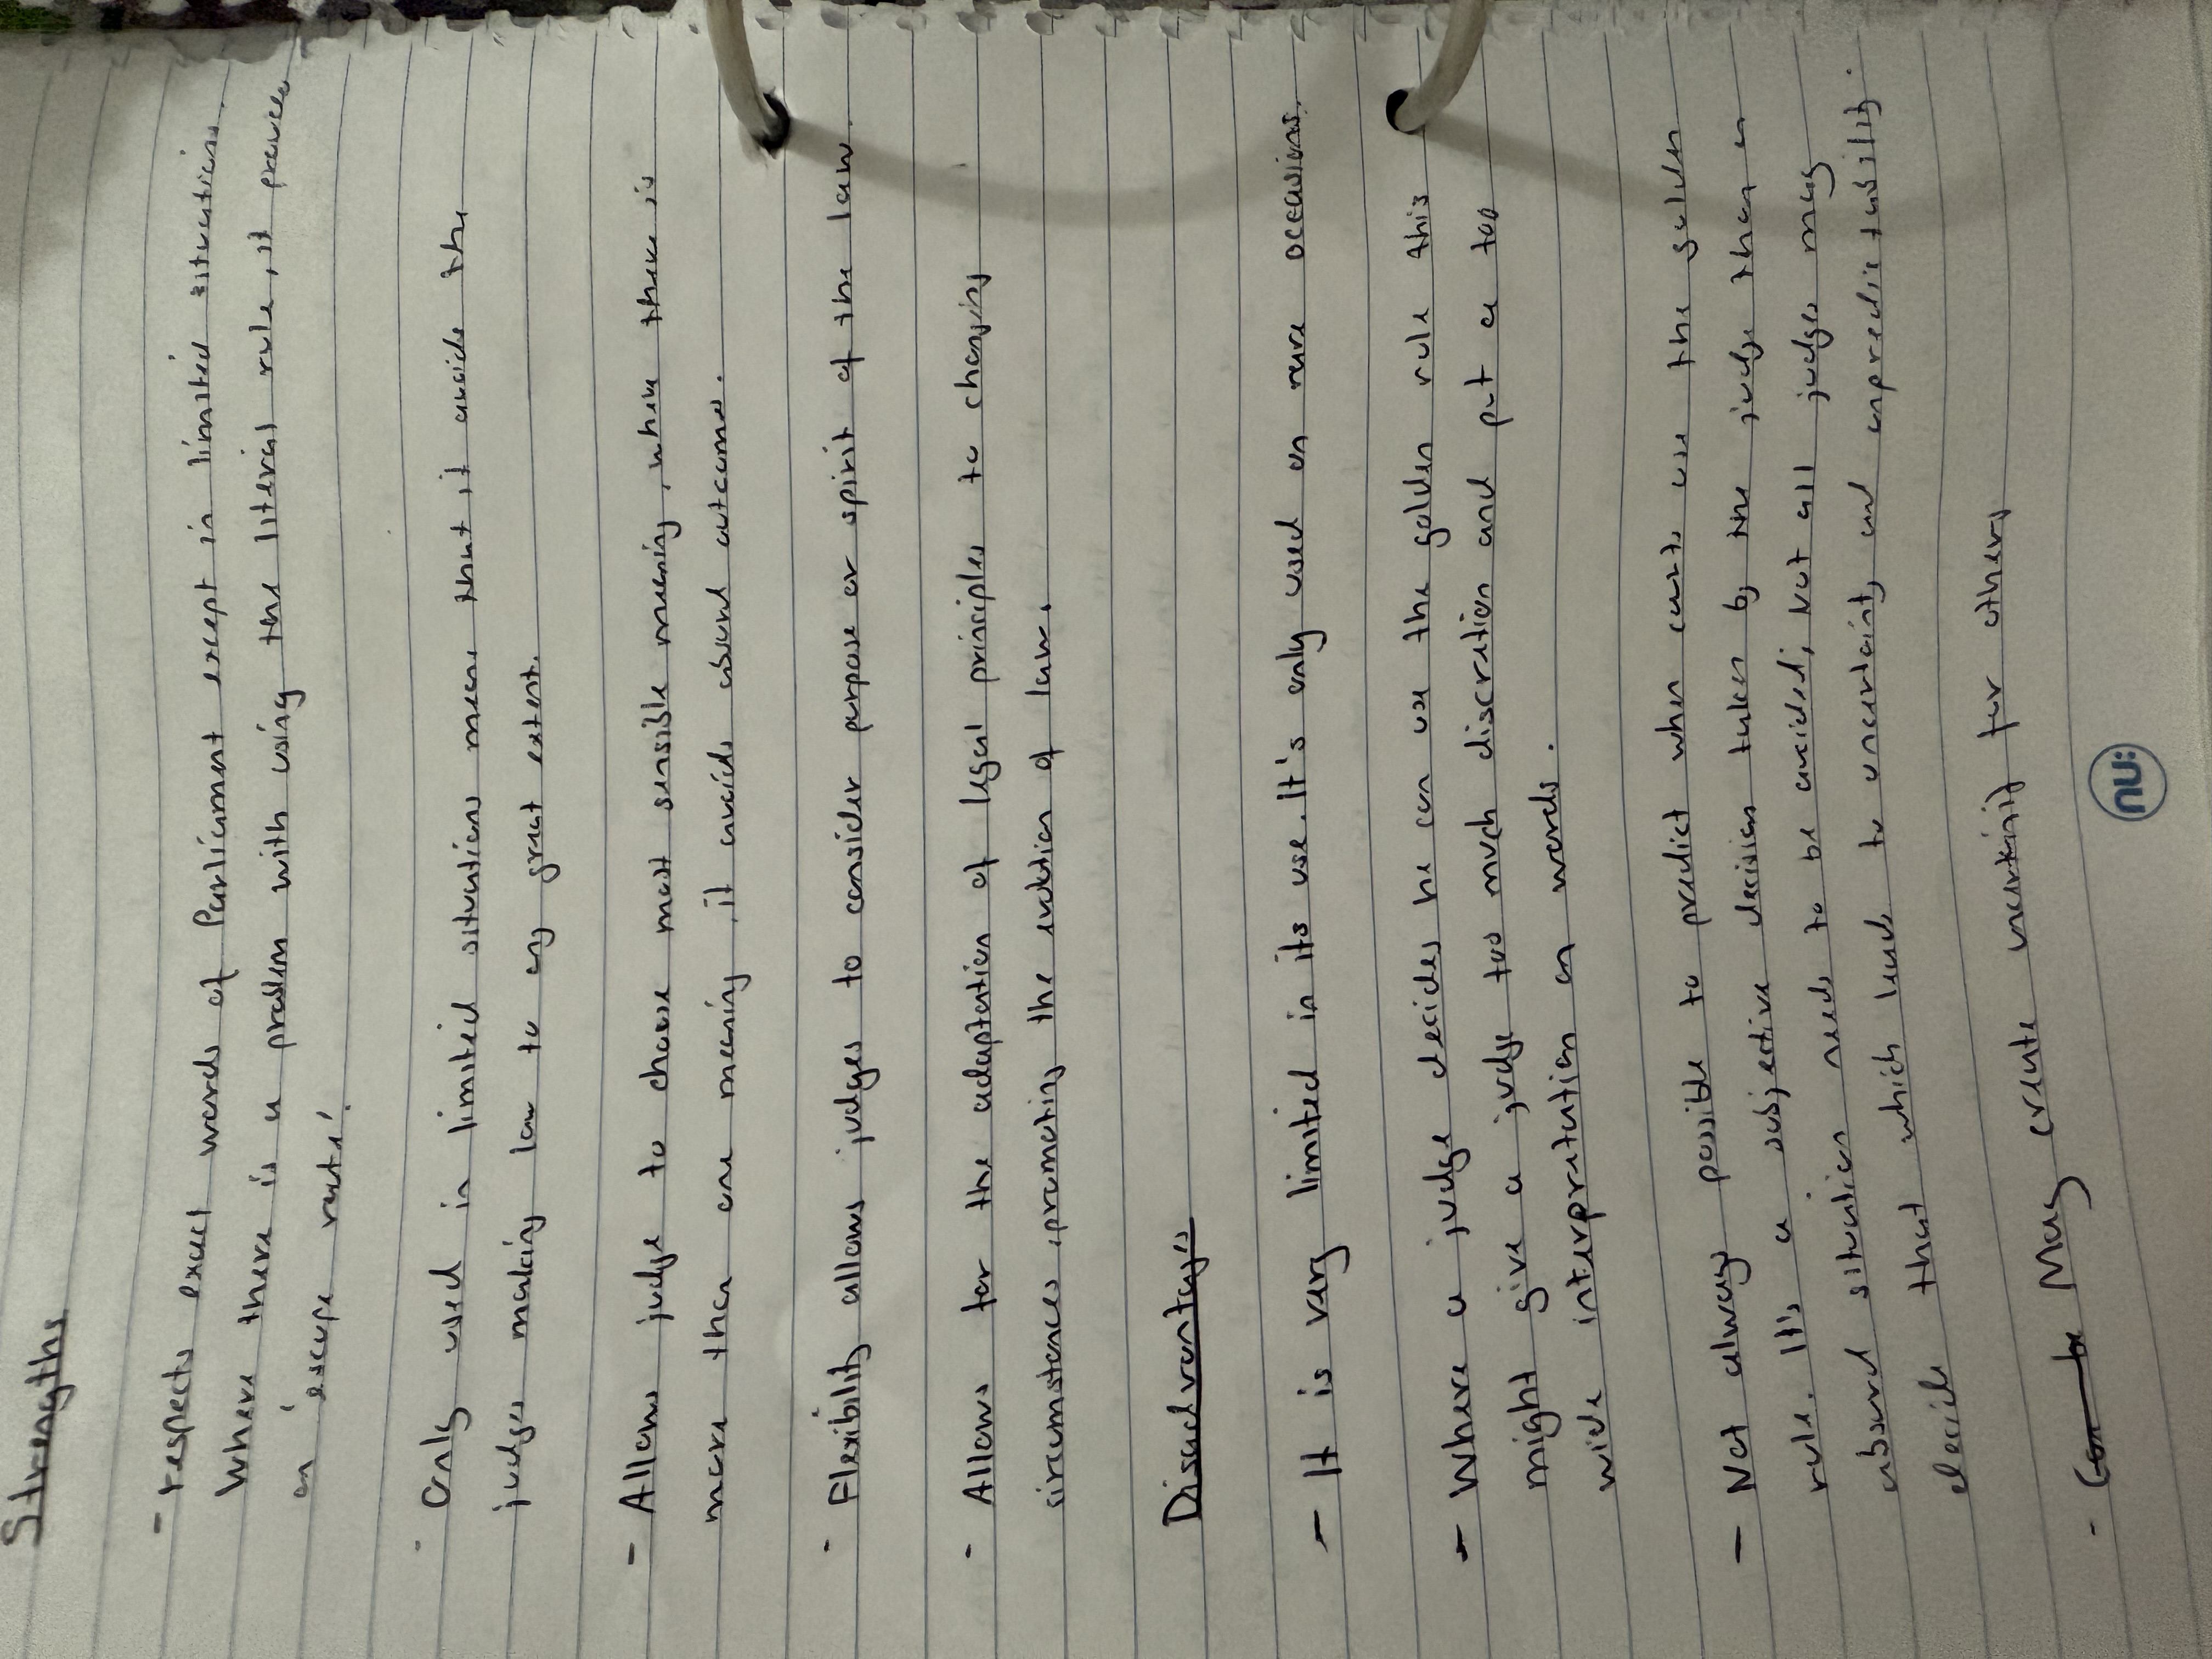 Strengths
- respects exact words of Parliament except in limited situations.
Where there is a problem with using the literal rule, it provides
an 'escape route'.
- Only used in limited situations means that it avoids the
judges making law to any great extent.
- Allows judge to choose most sensible meaning, when there is
more than one meaning, it avoids absurd outcomes.
- Flexibility allows judges to consider purpose or spirit of the law.
- Allows for the adaptation of legal principles to changing
circumstances, promoting the evolution of law.
Disadvantages
- It is very limited in its use. It's only used on rare occasions.
- Where a judge decides he can use the golden rule this
might give a judge too much discretion and put a too
wide interpretation on words.
- Not always possible to predict when courts use the golden
rule. It's a subjective decision taken by the judge than an
absurd situation needs to be avoided; Not all judges may
decide that which leads to uncertainty and unpredictability.
- Can be May create uncertainty for others
nu: